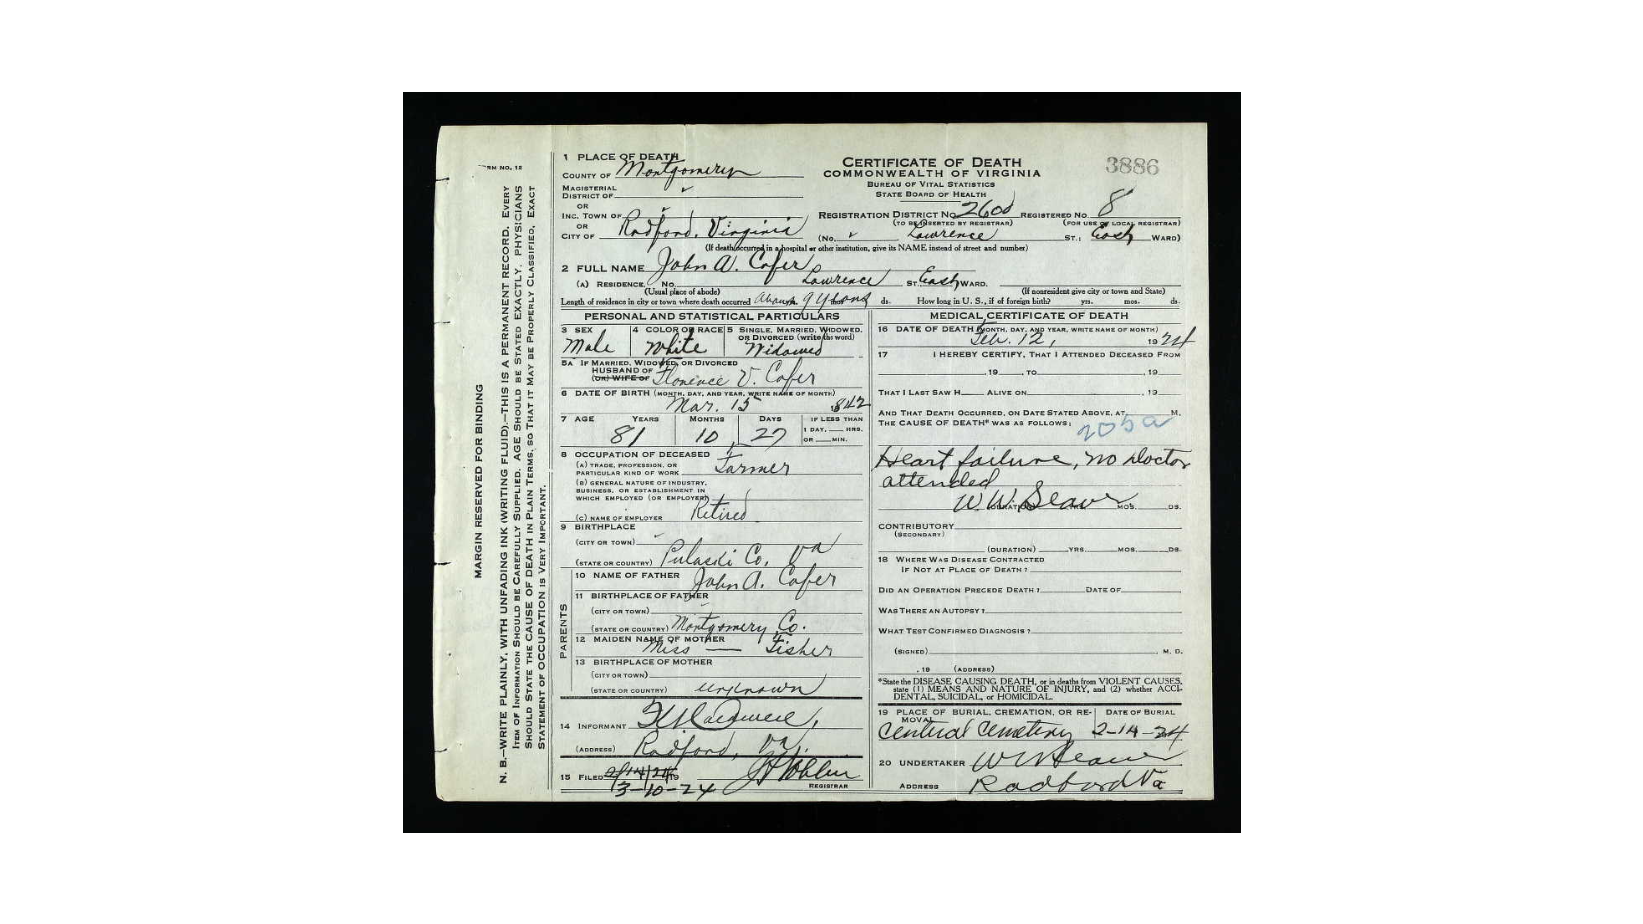 FORM NO. 12
MARGIN RESERVED FOR BINDING
N. B.—WRITE PLAINLY, WITH UNFADING INK (WRITING FLUID).—THIS IS A PERMANENT RECORD. EVERY
ITEM OF INFORMATION SHOULD BE CAREFULLY SUPPLIED. AGE SHOULD BE STATED EXACTLY. PHYSICIANS
SHOULD STATE THE CAUSE OF DEATH IN PLAIN TERMS, SO THAT IT MAY BE PROPERLY CLASSIFIED. EXACT
STATEMENT OF OCCUPATION IS VERY IMPORTANT.
1 PLACE OF DEATH
COUNTY OF Montgomery
MAGISTERIAL
DISTRICT OF
OR
INC. TOWN OF
OR
CITY OF Radford, Virginia
CERTIFICATE OF DEATH
COMMONWEALTH OF VIRGINIA
BUREAU OF VITAL STATISTICS
STATE BOARD OF HEALTH
3886
REGISTRATION DISTRICT NO. 2600 REGISTERED NO. 8
(TO BE INSERTED BY REGISTRAR) (FOR USE OF LOCAL REGISTRAR)
(No. Lawrence ST.; East WARD)
(If death occurred in a hospital or other institution, give its NAME instead of street and number)
2 FULL NAME John A. Cofer
(A) RESIDENCE. No. Lawrence ST. East WARD.
(Usual place of abode) (If nonresident give city or town and State)
Length of residence in city or town where death occurred About 9 years mos. ds. How long in U. S., if of foreign birth? yrs. mos. ds.
PERSONAL AND STATISTICAL PARTICULARS
3 SEX Male
4 COLOR OR RACE White
5 SINGLE, MARRIED, WIDOWED, OR DIVORCED (write the word) Widowed
5A IF MARRIED, WIDOWED, OR DIVORCED
HUSBAND OF
(OR) WIFE OF Florence V. Cofer
6 DATE OF BIRTH (MONTH, DAY, AND YEAR, WRITE NAME OF MONTH)
Mar. 15 1842
7 AGE YEARS MONTHS DAYS IF LESS THAN
1 DAY, HRS.
OR MIN.
81 10 27
8 OCCUPATION OF DECEASED
(A) TRADE, PROFESSION, OR
PARTICULAR KIND OF WORK Farmer
(B) GENERAL NATURE OF INDUSTRY,
BUSINESS, OR ESTABLISHMENT IN
WHICH EMPLOYED (OR EMPLOYER)
Retired
(C) NAME OF EMPLOYER
9 BIRTHPLACE
(CITY OR TOWN)
(STATE OR COUNTRY) Pulaski Co. Va
PARENTS
10 NAME OF FATHER John A. Cofer
11 BIRTHPLACE OF FATHER
(CITY OR TOWN)
(STATE OR COUNTRY) Montgomery Co.
12 MAIDEN NAME OF MOTHER
Miss — Fisher
13 BIRTHPLACE OF MOTHER
(CITY OR TOWN)
(STATE OR COUNTRY) unknown
14 INFORMANT
(ADDRESS) Radford, Va.
15 FILED 2/14/24 19
3-10-24
REGISTRAR
MEDICAL CERTIFICATE OF DEATH
16 DATE OF DEATH (MONTH, DAY, AND YEAR, WRITE NAME OF MONTH)
Feb. 12, 1924
17 I HEREBY CERTIFY, THAT I ATTENDED DECEASED FROM
, 19 , TO , 19
THAT I LAST SAW H ALIVE ON , 19
AND THAT DEATH OCCURRED, ON DATE STATED ABOVE, AT M.
THE CAUSE OF DEATH* WAS AS FOLLOWS:
205a
Heart failure, no Doctor
attended
W. W. Seaver
(DURATION) YRS. MOS. DS.
CONTRIBUTORY
(SECONDARY)
(DURATION) YRS. MOS. DS.
18 WHERE WAS DISEASE CONTRACTED
IF NOT AT PLACE OF DEATH?
DID AN OPERATION PRECEDE DEATH? DATE OF
WAS THERE AN AUTOPSY?
WHAT TEST CONFIRMED DIAGNOSIS?
(SIGNED) , M. D.
, 19 (ADDRESS)
*State the DISEASE CAUSING DEATH, or in deaths from VIOLENT CAUSES,
state (1) MEANS AND NATURE OF INJURY, and (2) whether ACCI-
DENTAL, SUICIDAL, or HOMICIDAL.
19 PLACE OF BURIAL, CREMATION, OR RE-
MOVAL
DATE OF BURIAL
Central Cemetery 2-14-24
20 UNDERTAKER W W Seaver
ADDRESS Radford Va